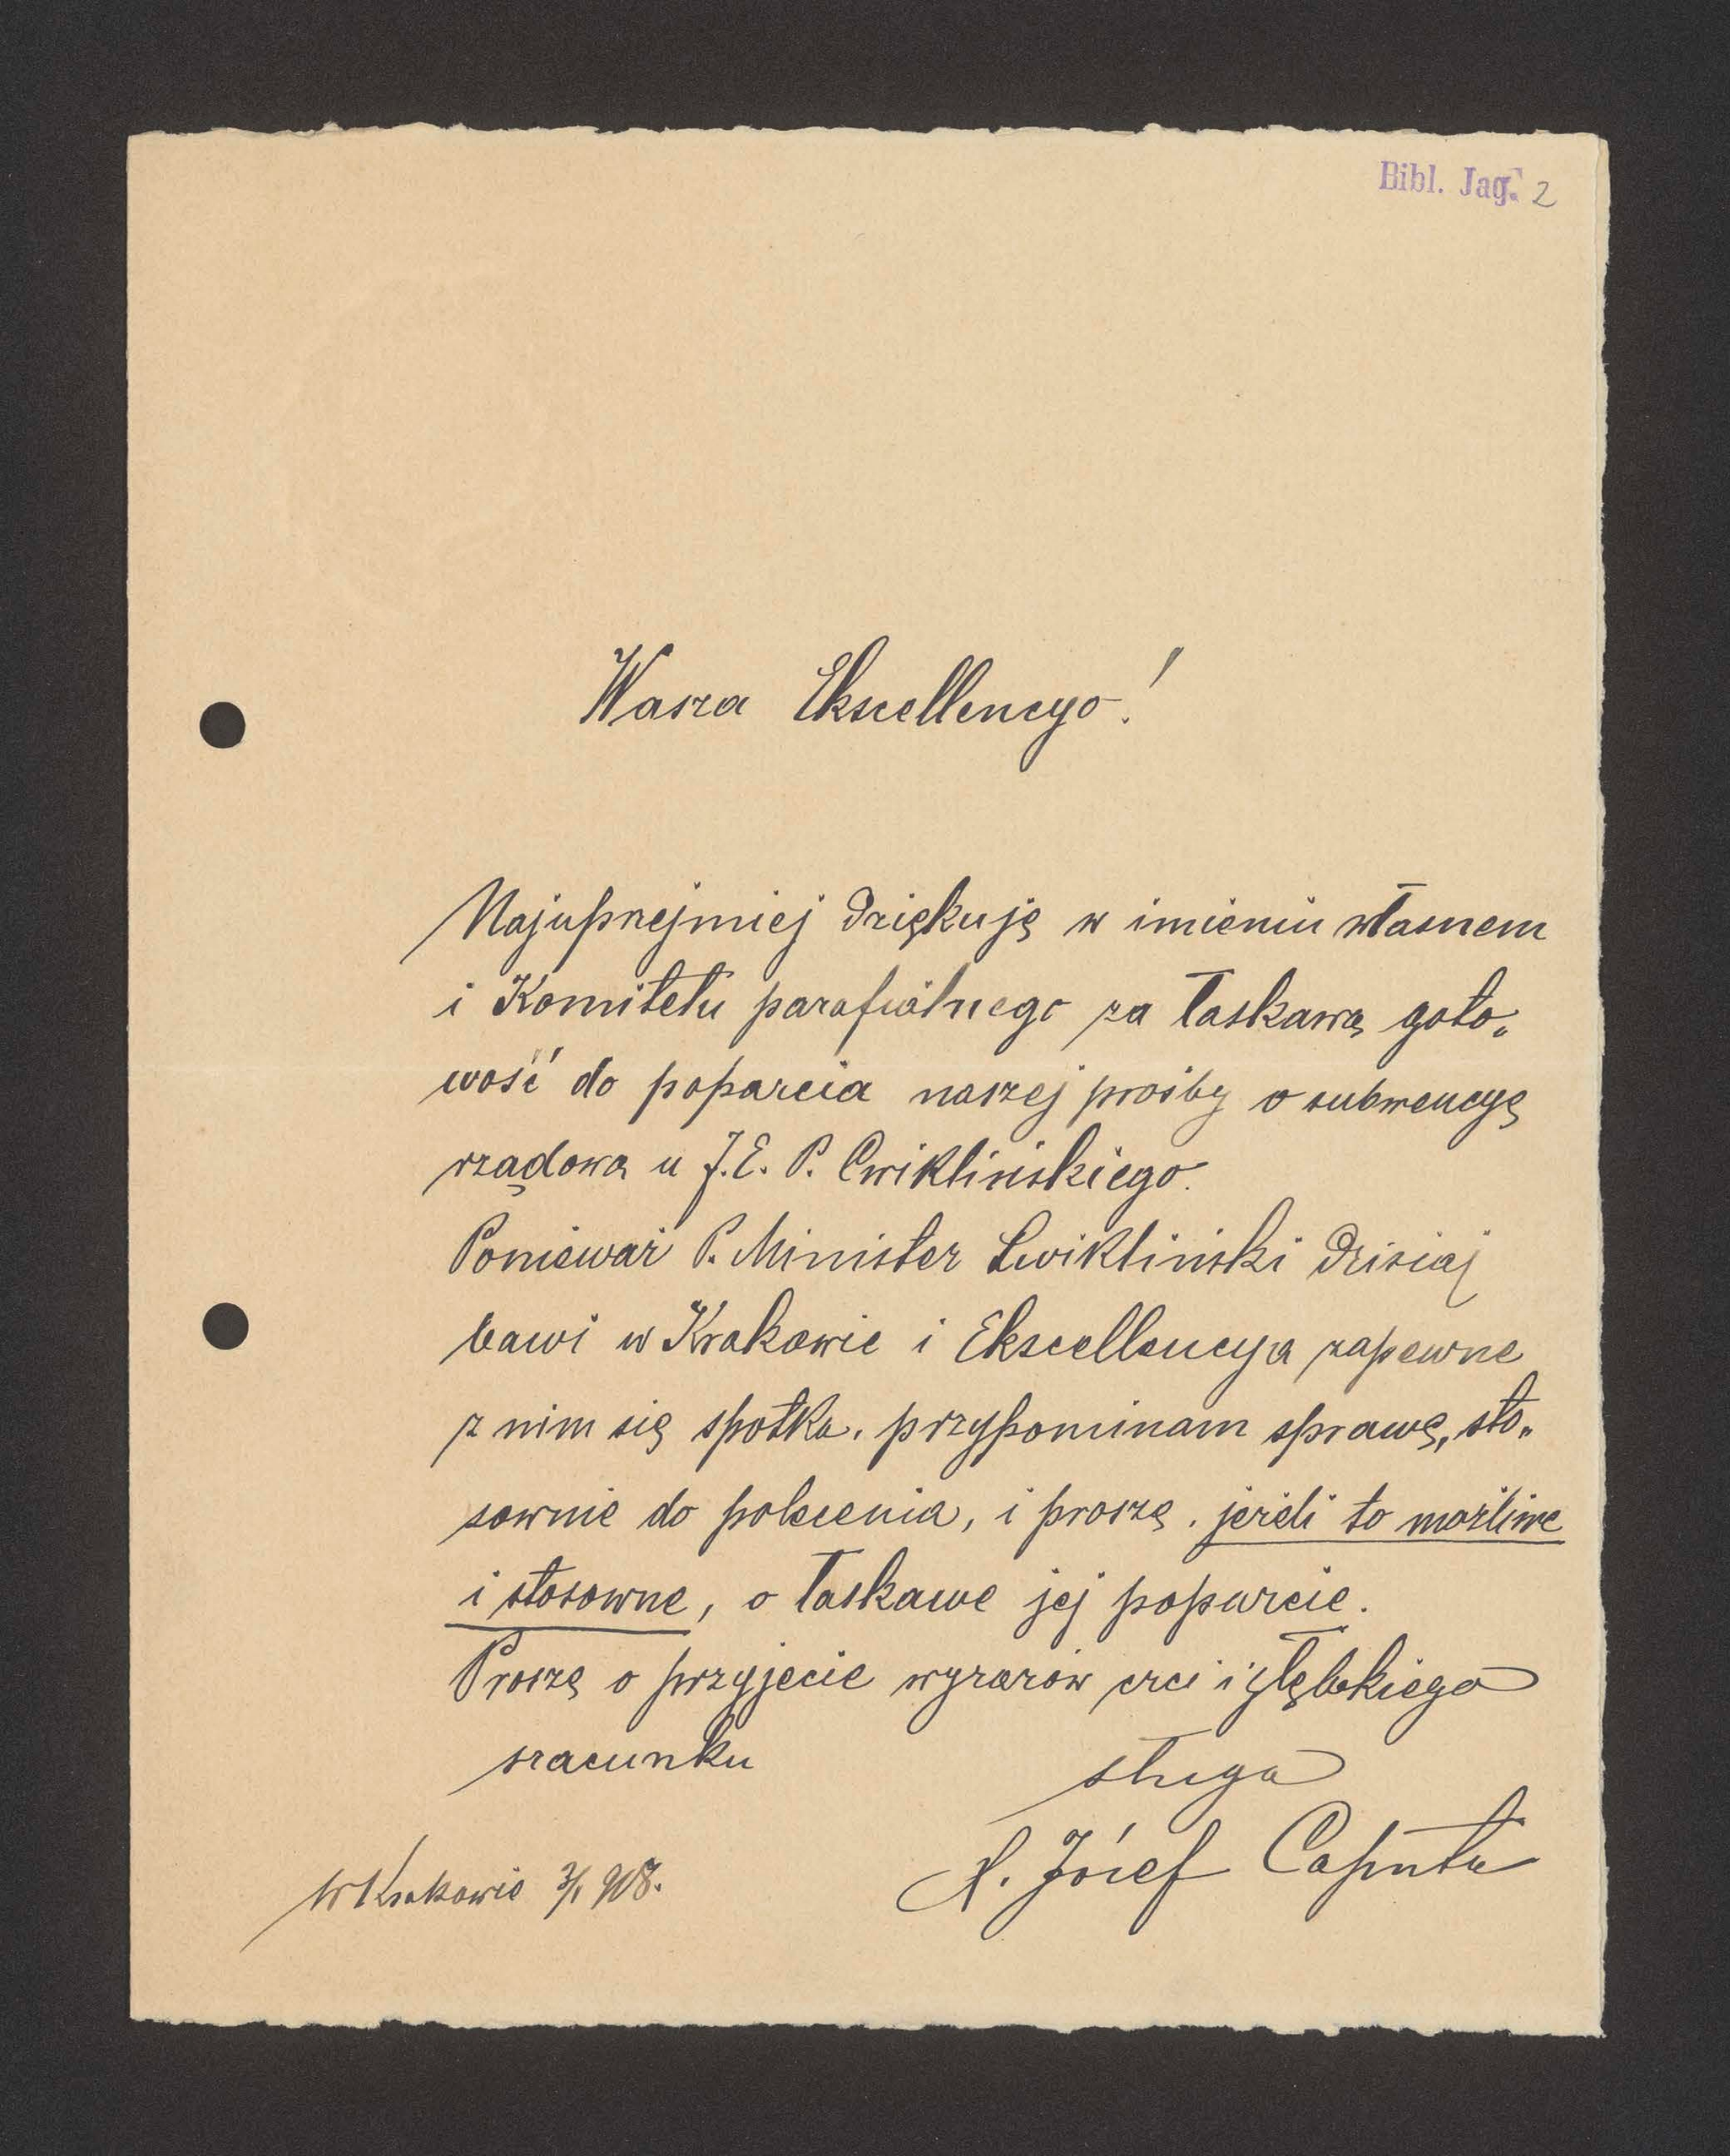 Bibl. Jag. 2
Wasza Ekscellencyo!
Najuprzejmiej dziękuję w imieniu własnem
i Komitetu parafialnego za łaskawą goto„
wość do poparcia naszej prośby o subwencyę
rządową u J. E. P. Cwiklińskiego.
Ponieważ P. Minister Cwikliński dzisiaj
bawi w Krakowie i Ekscellencya zapewne
z nim się spotka, przypominam sprawę, sto„
sownie do polecenia, i proszę, jeżeli to możliwe
i stosowne, o łaskawe jej poparcie.
Proszę o przyjęcie wyrazów czci i głębokiego
szacunku
sługa
X. Józef Caputa
W Krakowie 3/1 908.